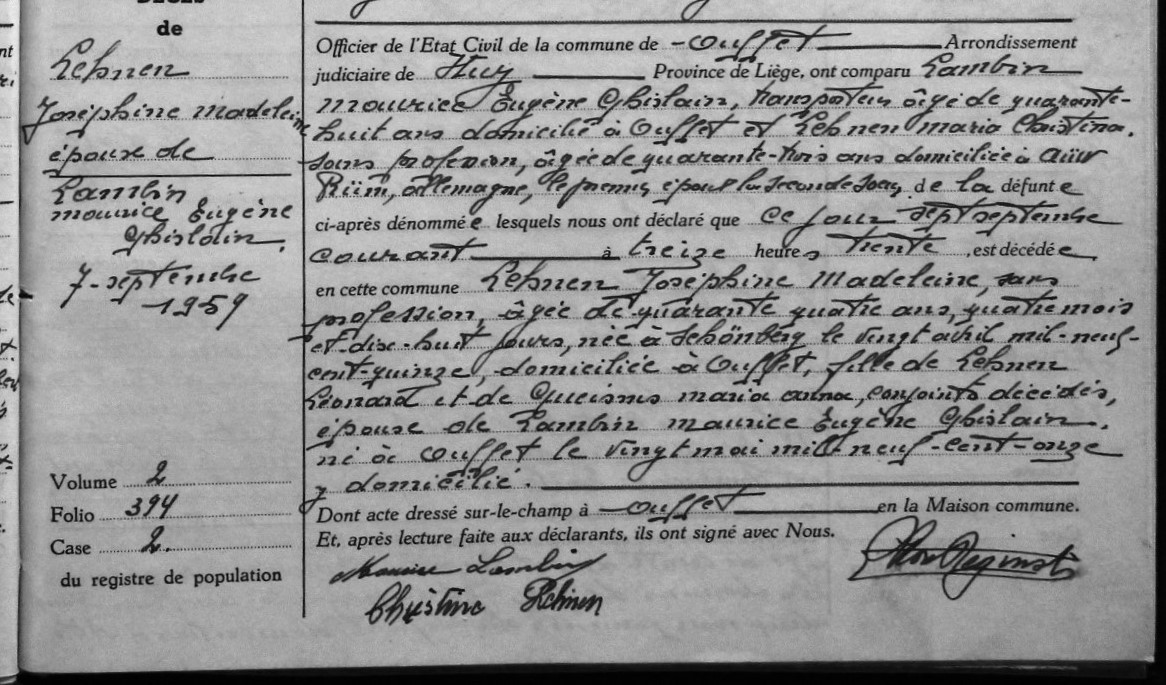 de
Lehnen
Joséphine Madeleine
épouse de
Lambin
Maurice Eugène
Ghislain.
7 septembre
1959
Volume 2
Folio 394
Case 2.
du registre de population
Officier de l'Etat Civil de la commune de Ouffet Arrondissement
judiciaire de Huy Province de Liège, ont comparu Lambin
Maurice Eugène Ghislain, transporteur âgé de quarante-
huit ans domicilié à Ouffet et Lehnen Maria Christina.
sans profession, âgée de quarante-trois ans domiciliée à
Allemagne, le premier époux la seconde soeur de la défunte
ci-après dénommée lesquels nous ont déclaré que ce jour sept septembre
courant à treize heures trente, est décédée
en cette commune Lehnen Joséphine Madeleine, sans
profession, âgée de quarante quatre ans, quatre mois
et dix-huit jours, née à Schönberg le vingt avril mil-neuf-
cent-quinze, domiciliée à Ouffet, fille de Lehnen
Léonard et de Maria Anna, conjoints décédés,
épouse de Lambin Maurice Eugène Ghislain.
né à Ouffet le vingt mai mil neuf-cent-onze
y domicilié.
Dont acte dressé sur-le-champ à Ouffet en la Maison commune.
Et, après lecture faite aux déclarants, ils ont signé avec Nous.
Maurice Lambin
Christine Lehnen